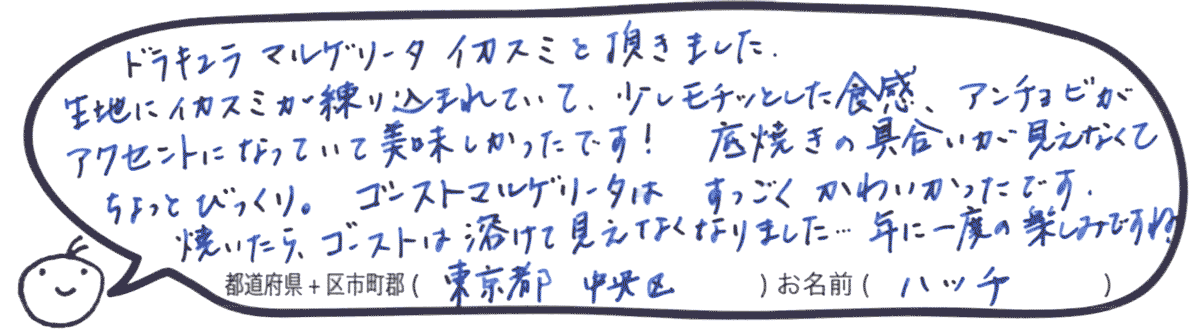 ドラキュラ マルゲリータ イカスミと頂きました.
生地にイカスミが練り込まれていて、少しモチッとした食感、アンチョビが
アクセントになっていて美味しかったです! 底焼きの具合いが見えなくて
ちょっとびっくり。 ゴーストマルゲリータは すっごく かわいかったです.
焼いたら、ゴーストは溶けて見えなくなりました… 年に一度の楽しみですね
都道府県+区市町郡( 東京都 中央区 )お名前( ハッチ )